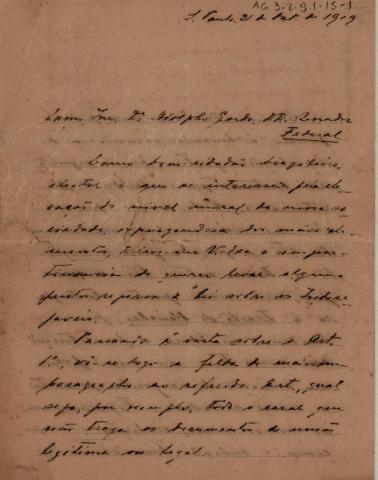 AG 3-2-9.1-15-1
S. Paulo, 21 de Out. de 1919
Exmo. Snr. Dr. Adolpho Gordo, DD. Senador
Federal
Como bom cidadão brasileiro,
eleitor e que se interessa pela ele-
vação do nivel moral da nossa so-
ciedade, expurgando-a dos máos ele-
mentos, a V. Excia a impor-
tinencia de querer levar alguns
justos reparos á "Lei sobre os Indese-
javeis.
Passando á vista sobre o Art.
1º, vê-se logo a falta de mais um
paragrapho ao referido Art, qual
seja, por exemplo, todo o casal que
não traga os documentos de união
legitima ou legal.